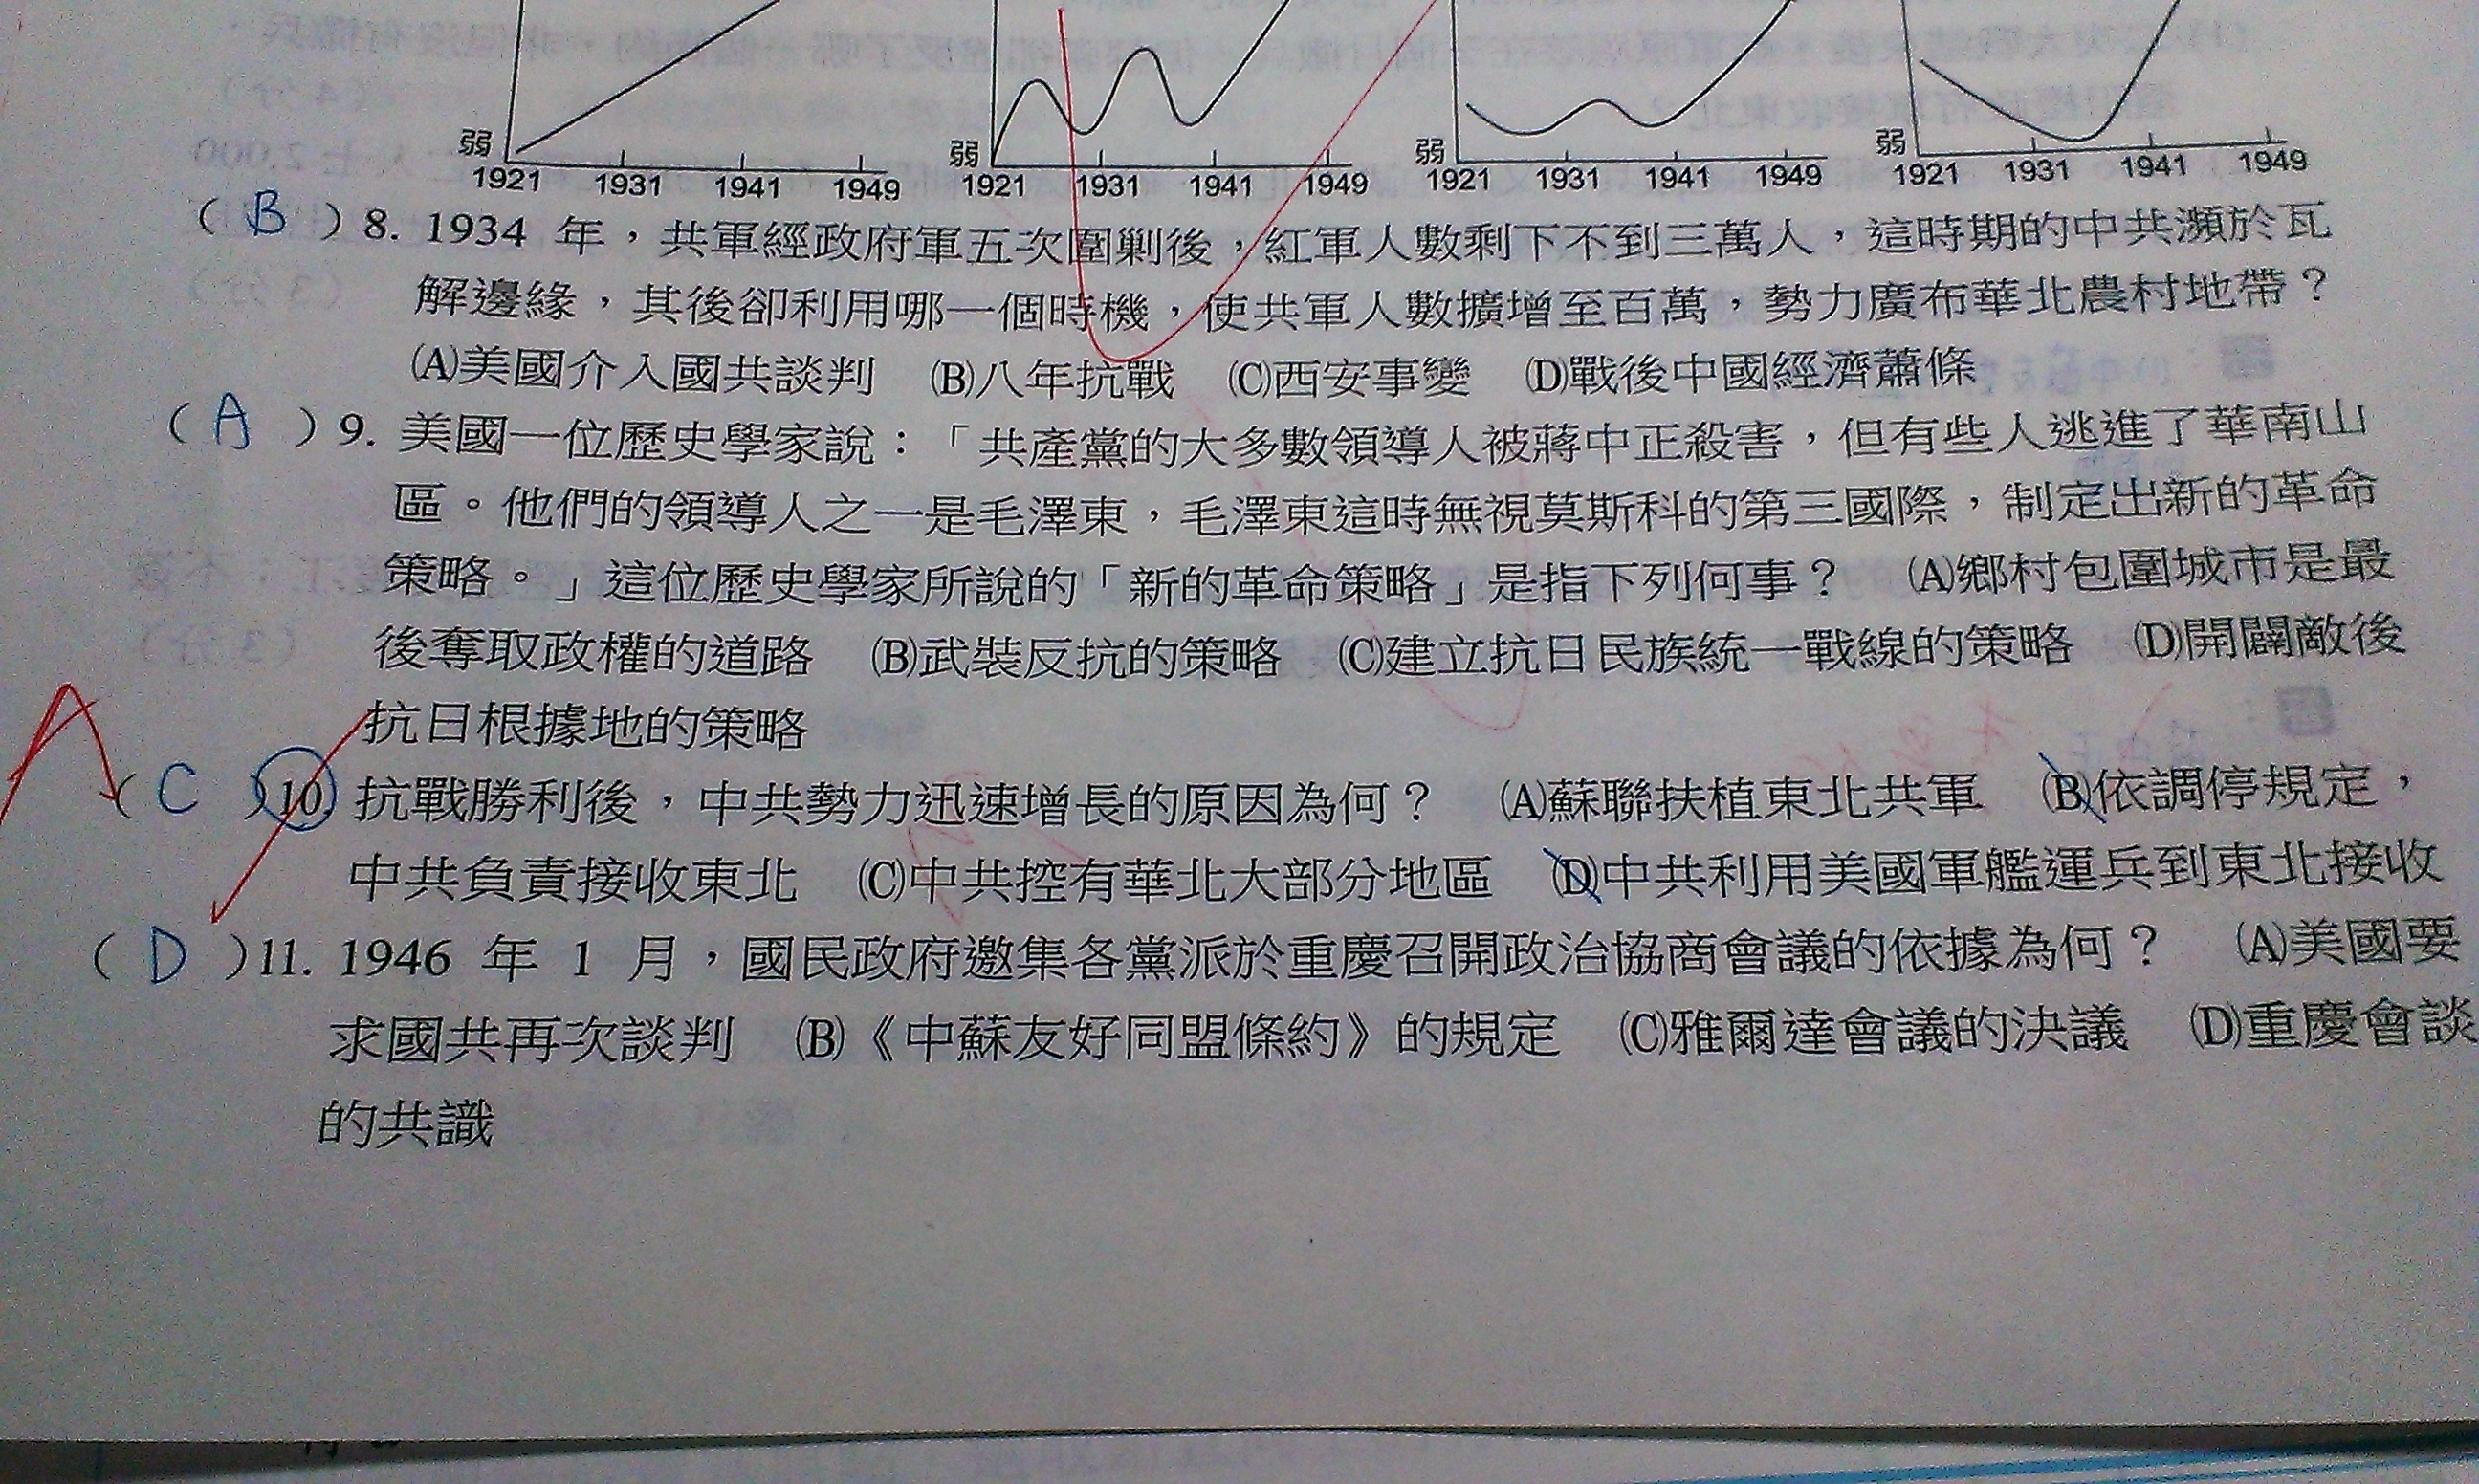 弱 弱 弱 弱
1921 1931 1941 1949 1921 1931 1941 1949 1921 1931 1941 1949 1921 1931 1941 1949
( B ) 8. 1934 年，共軍經政府軍五次圍剿後，紅軍人數剩下不到三萬人，這時期的中共瀕於瓦
解邊緣，其後卻利用哪一個時機，使共軍人數擴增至百萬，勢力廣布華北農村地帶？
(A)美國介入國共談判 (B)八年抗戰 (C)西安事變 (D)戰後中國經濟蕭條
( A ) 9. 美國一位歷史學家說：「共產黨的大多數領導人被蔣中正殺害，但有些人逃進了華南山
區。他們的領導人之一是毛澤東，毛澤東這時無視莫斯科的第三國際，制定出新的革命
策略。」這位歷史學家所說的「新的革命策略」是指下列何事？ (A)鄉村包圍城市是最
後奪取政權的道路 (B)武裝反抗的策略 (C)建立抗日民族統一戰線的策略 (D)開闢敵後
抗日根據地的策略
A ( C ) 10. 抗戰勝利後，中共勢力迅速增長的原因為何？ (A)蘇聯扶植東北共軍 (B)依調停規定，
中共負責接收東北 (C)中共控有華北大部分地區 (D)中共利用美國軍艦運兵到東北接收
( D ) 11. 1946 年 1 月，國民政府邀集各黨派於重慶召開政治協商會議的依據為何？ (A)美國要
求國共再次談判 (B)《中蘇友好同盟條約》的規定 (C)雅爾達會議的決議 (D)重慶會談
的共識